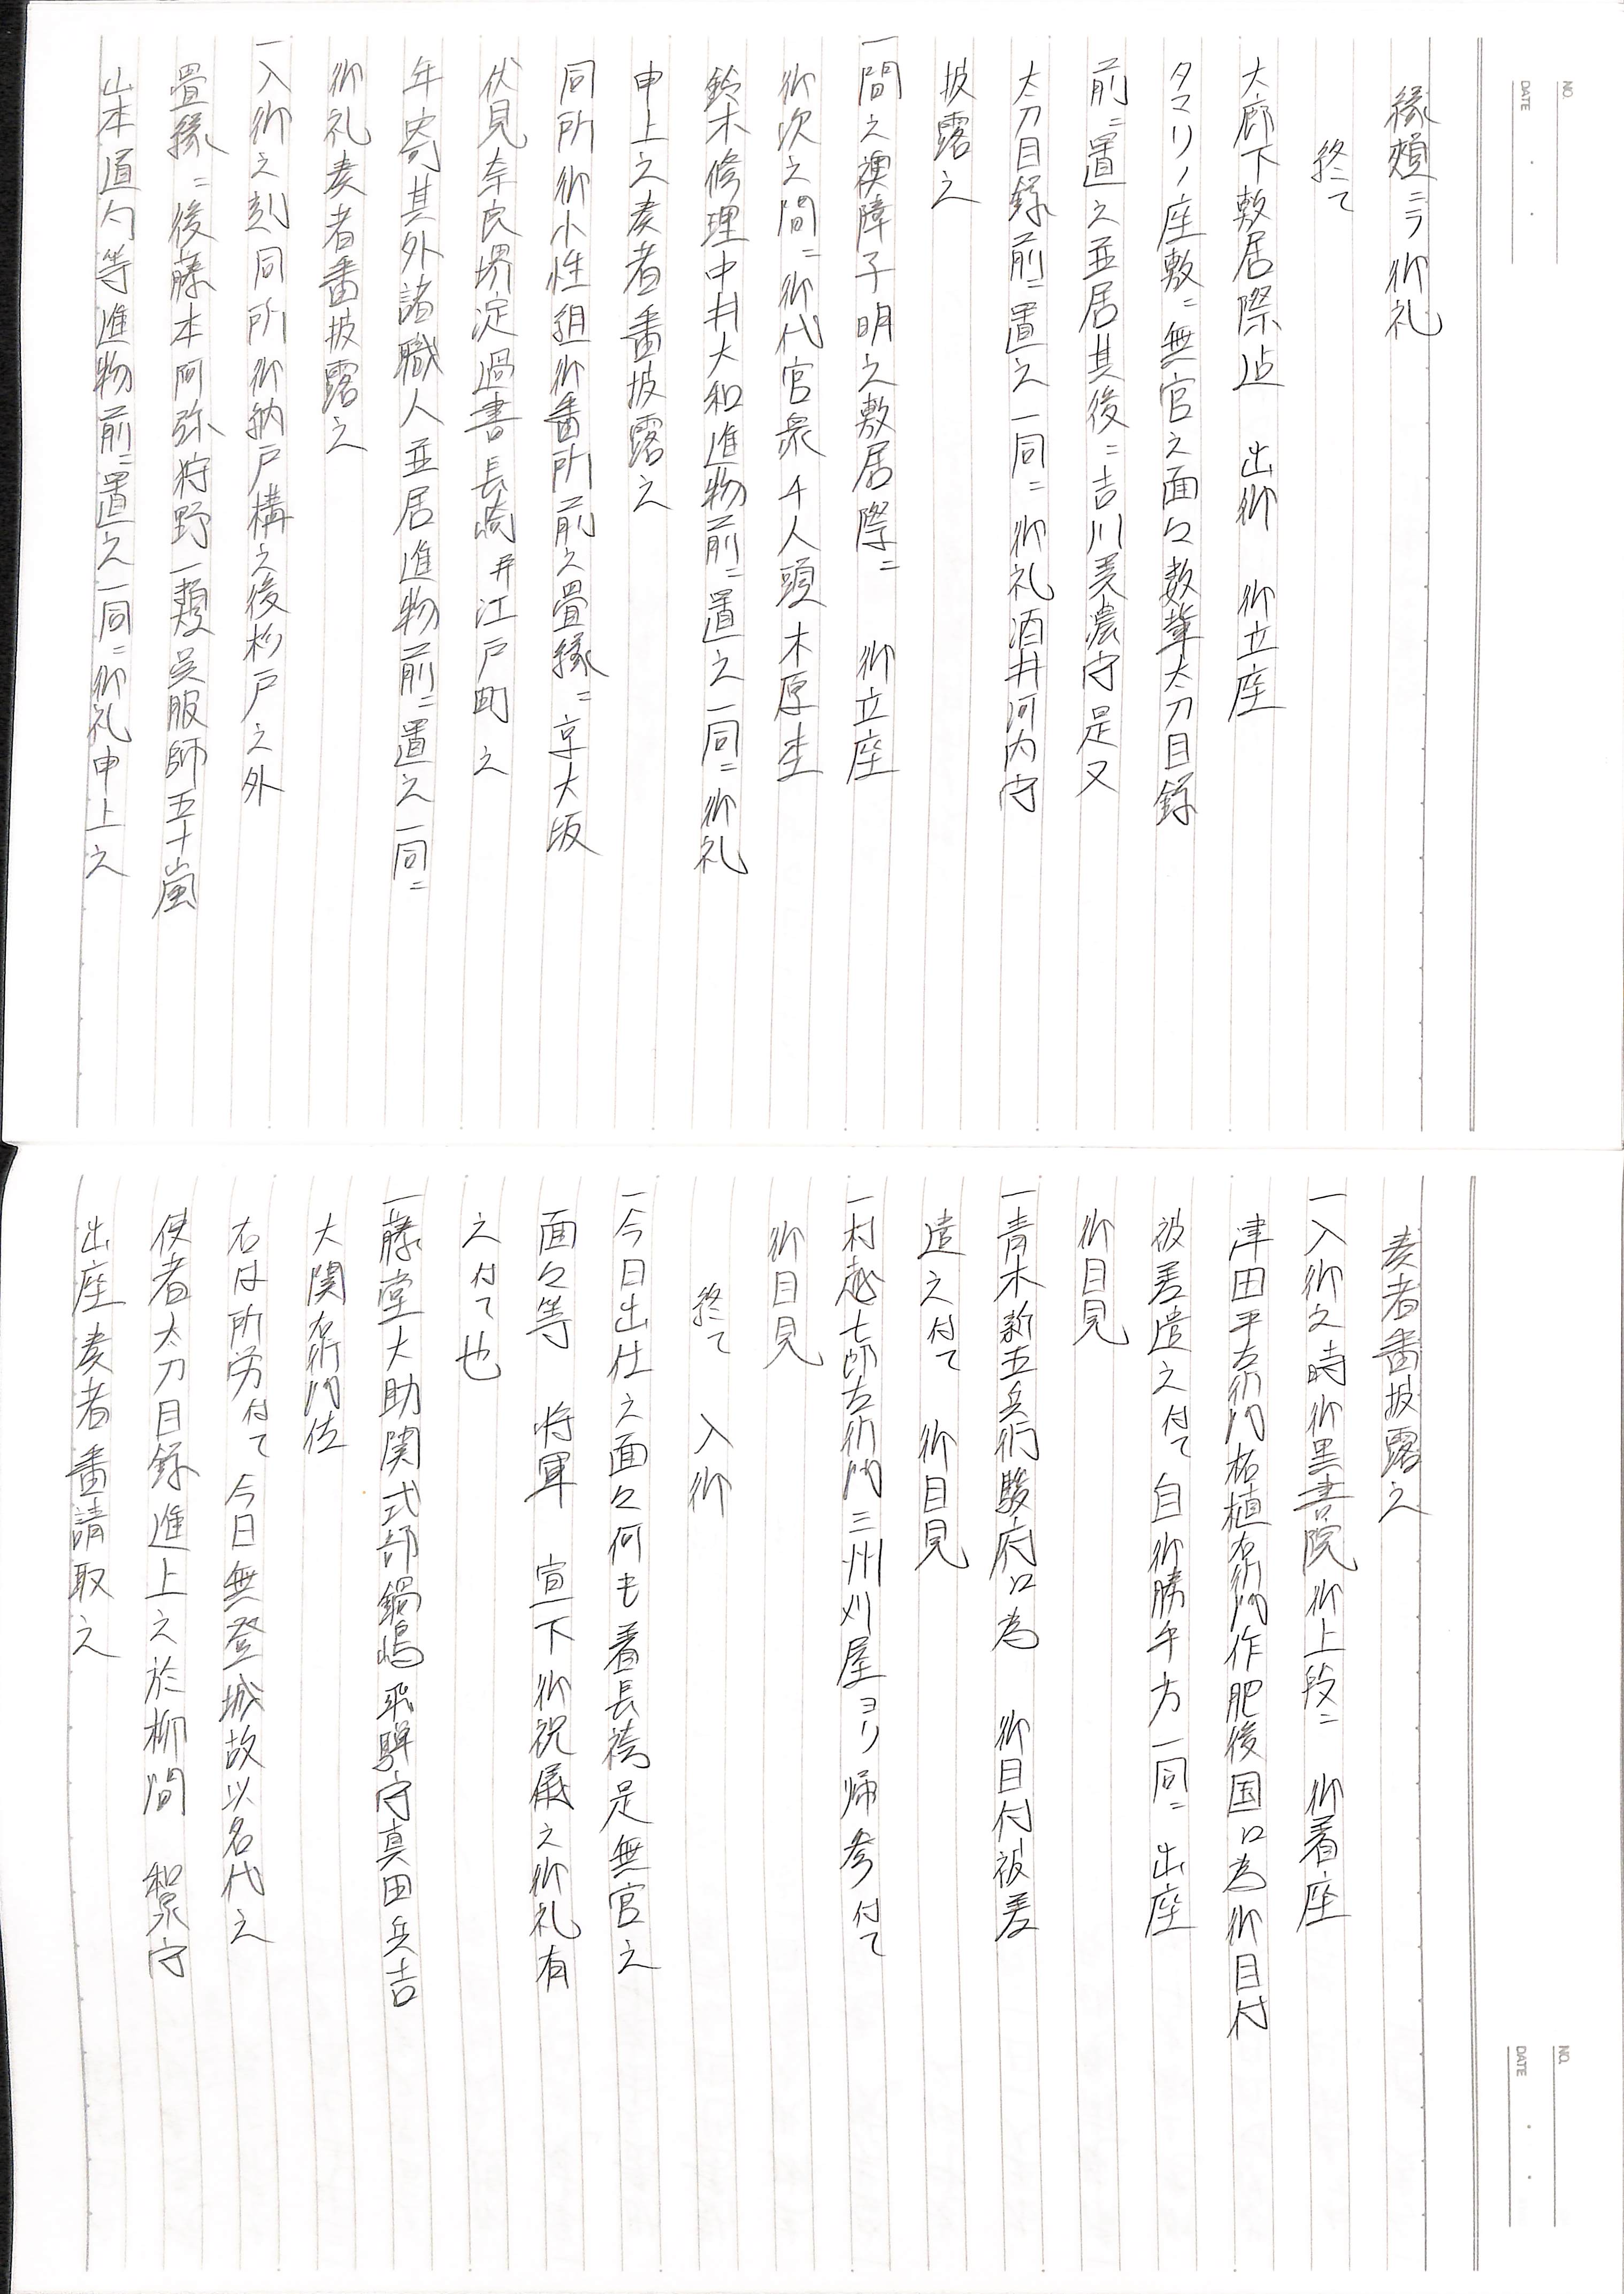 NO.
DATE
縁頬ニ而御礼
終て
大廊下敷居際迠 出御 御立座
タマリノ座敷ニ無官之面々数輩太刀目録
前ニ置之並居其後ニ吉川美濃守是又
太刀目録前ニ置之一同ニ御礼酒井河内守
披露之
一間之襖障子明之敷居際ニ 御立座
御次之間ニ御代官衆千人頭木原杢
鈴木修理中井大和進物前ニ置之一同ニ御礼
申上之奏者番披露之
同所御小性組御番所前之畳縁ニ京大坂
伏見奈良堺淀過書長崎并江戸町之
年寄其外諸職人並居進物前ニ置之一同ニ
御礼奏者番披露之
一入御之刻同所御納戸構之後杉戸之外
畳縁ニ後藤本阿弥狩野一類呉服師五十嵐
山本道勺等進物前ニ置之一同ニ御礼申上之
NO.
DATE
奏者番披露之
一入御之時御黒書院御上段ニ 御着座
津田平左衛門柘植右衛門作肥後国江為御目付
被差遣之付て自御勝手方一同ニ出座
御目見
一青木新五兵衛駿府江為 御目付被差
遣之付て 御目見
一村越七郎左衛門三州刈屋ヨリ帰参付て
御目見
終て 入御
一今日出仕之面々何も着長袴是無官之
面々等 将軍 宣下御祝儀之御礼有
之付て也
一藤堂大助関式部鍋嶋飛騨守真田兵吉
大関右衛門佐
右は所労付て今日無登城故以名代之
使者太刀目録進上之於柳間 和泉守
出座奏者番請取之